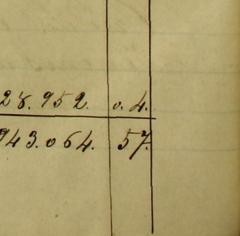 28.952. 0.4.
943.064. 57.